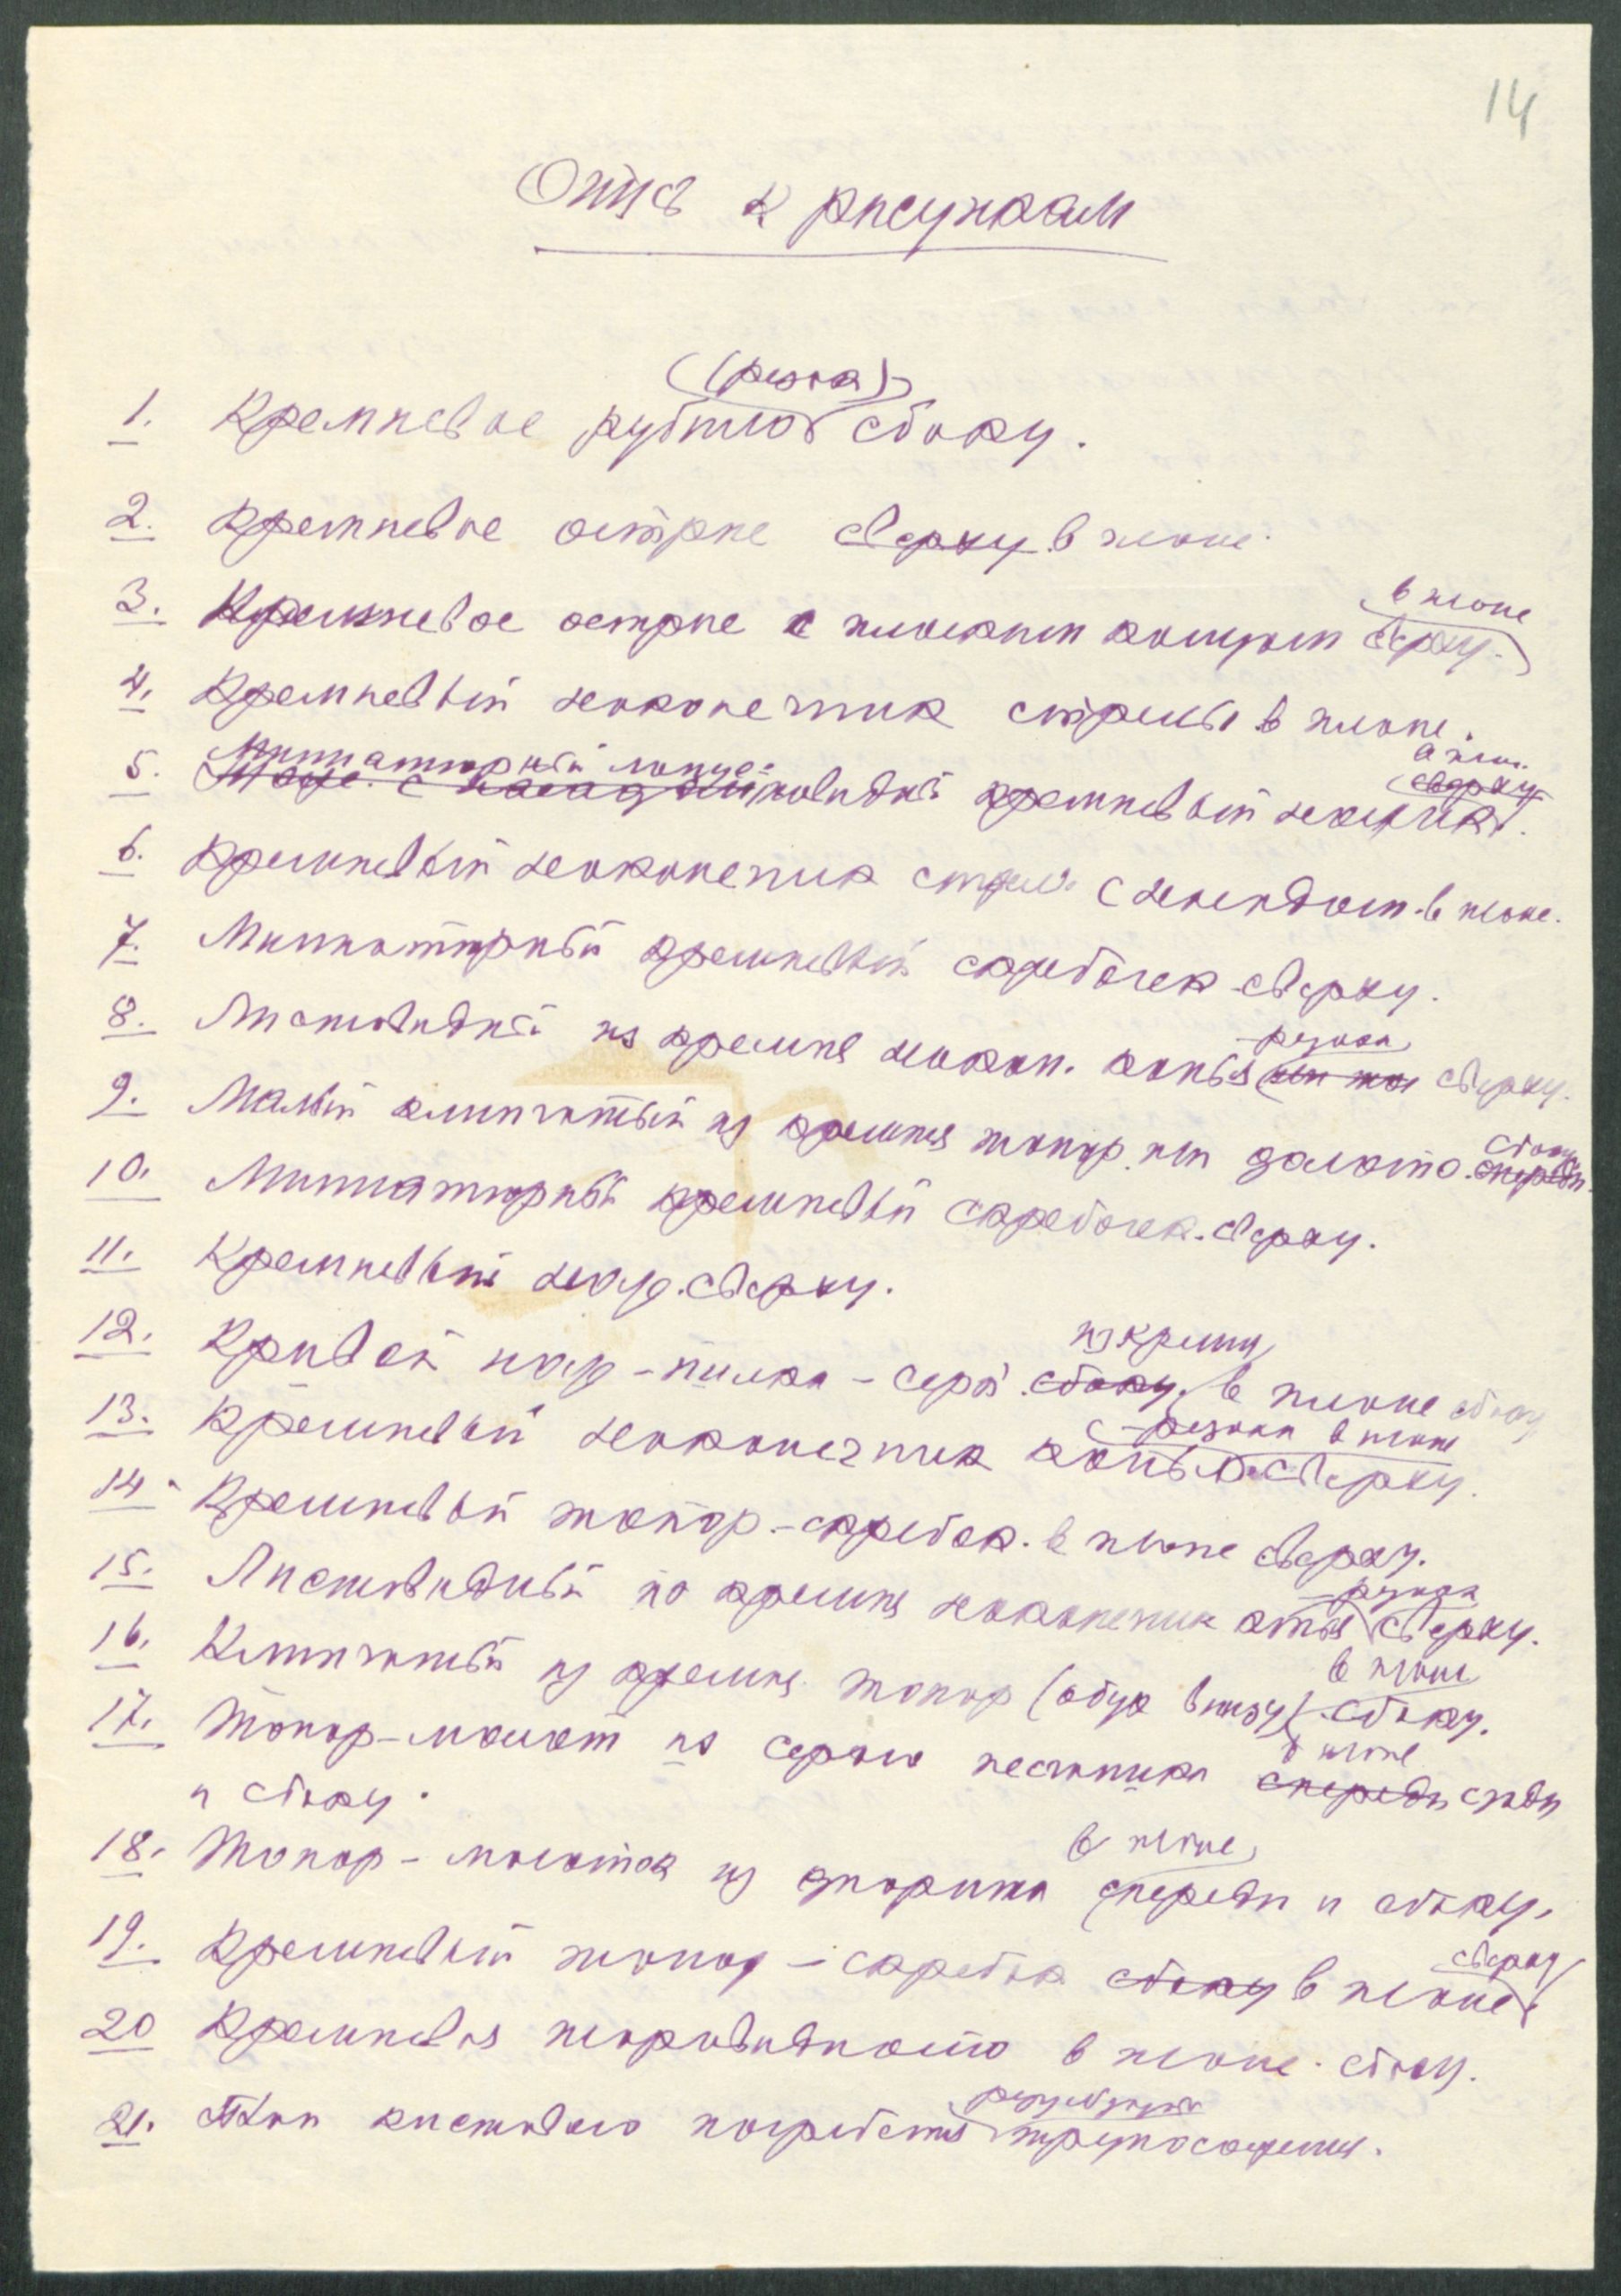 14
Опись к рисункам
1. Кремневое рубило (резак) сбоку.
2. Кремневое острие сверху в плане.
3. Кремневое острие с плоским концом в плане сверху.
4. Кремневый наконечник стрелы в плане.
5. Миниатюрный ланцетовидный кремневый сверху
6. Кремневый наконечник стрелы с в плане.
7. Миниатюрный кремневый скребочек сверху.
8. Листовидный из кремня након. копья резака сверху.
9. Малый клинчатый из кремня топор или долото. сбоку спереди.
10. Миниатюрный кремневый скребочек. сверху.
11. Кремневый нож. сверху.
12. Кривой нож-пилка-серп. сбоку. из кремня в плане сбоку
13. Кремневый наконечник копья-резака в плане сверху.
14. Кремневый топор-скребок. в плане сверху.
15. Листовидный из кремня наконечник копья резака сверху.
16. Клинчатый из кремня топор (обух внизу) в плане сбоку.
17. Топор-молот из серого песчаника в плане спереди сзади
и сбоку.
18. Топор-молоток из диорита в плане спереди и сбоку.
19. Кремневый топор-скребок сбоку в плане сверху
20 Кремневая в плане. сбоку.
21. Тип костяного погребения трупосожжения.